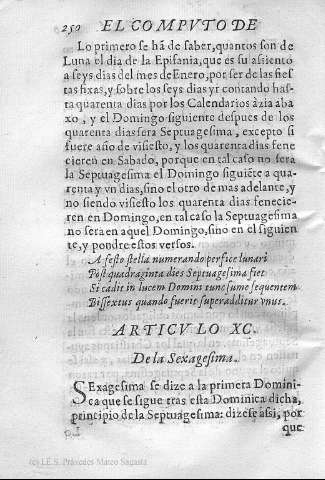 250 EL COMPVTO DE
Lo primero se hã de saber, quantos son de
Luna el dia de la Epifania, que es su asiẽto
a seys dias del mes de Enero, por ser de las fies
tas fixas, y sobre los seys dias yr contando hasta
quarenta dias por los Calendarios àzia aba
xo, y el Domingo siguiente despues de los
quarenta dias sera Septuagesima, excepto si
fuere año de visiesto, y los quarenta dias fene
cieren en Sabado, porque en tal caso no sera
la Septuagesima el Domingo siguiẽte a qua-
renta y vn dias, sino el otro de mas adelante, y
no siendo visiesto los quarenta dias fenecie-
ren en Domingo, en tal caso la Septuagesima
no sera en aquel Domingo, sino en el siguien
te, y pondre estos versos.
A festo stella numerando perfice lunari
Post quadraginta dies Septuagesima fiet
Si cadit in lucem Domini tunc sume sequentem
Bissextus quando fuerit superadditur vnus.
ARTICVLO XC.
De la Sexagesima.
SExagesima se dize a la primera Domini-
ca que se sigue tras esta Dominica dicha,
principio de la Septuagesima: dizese assi, por
que
(c) I.E.S. Práxedes Mateo Sagasta